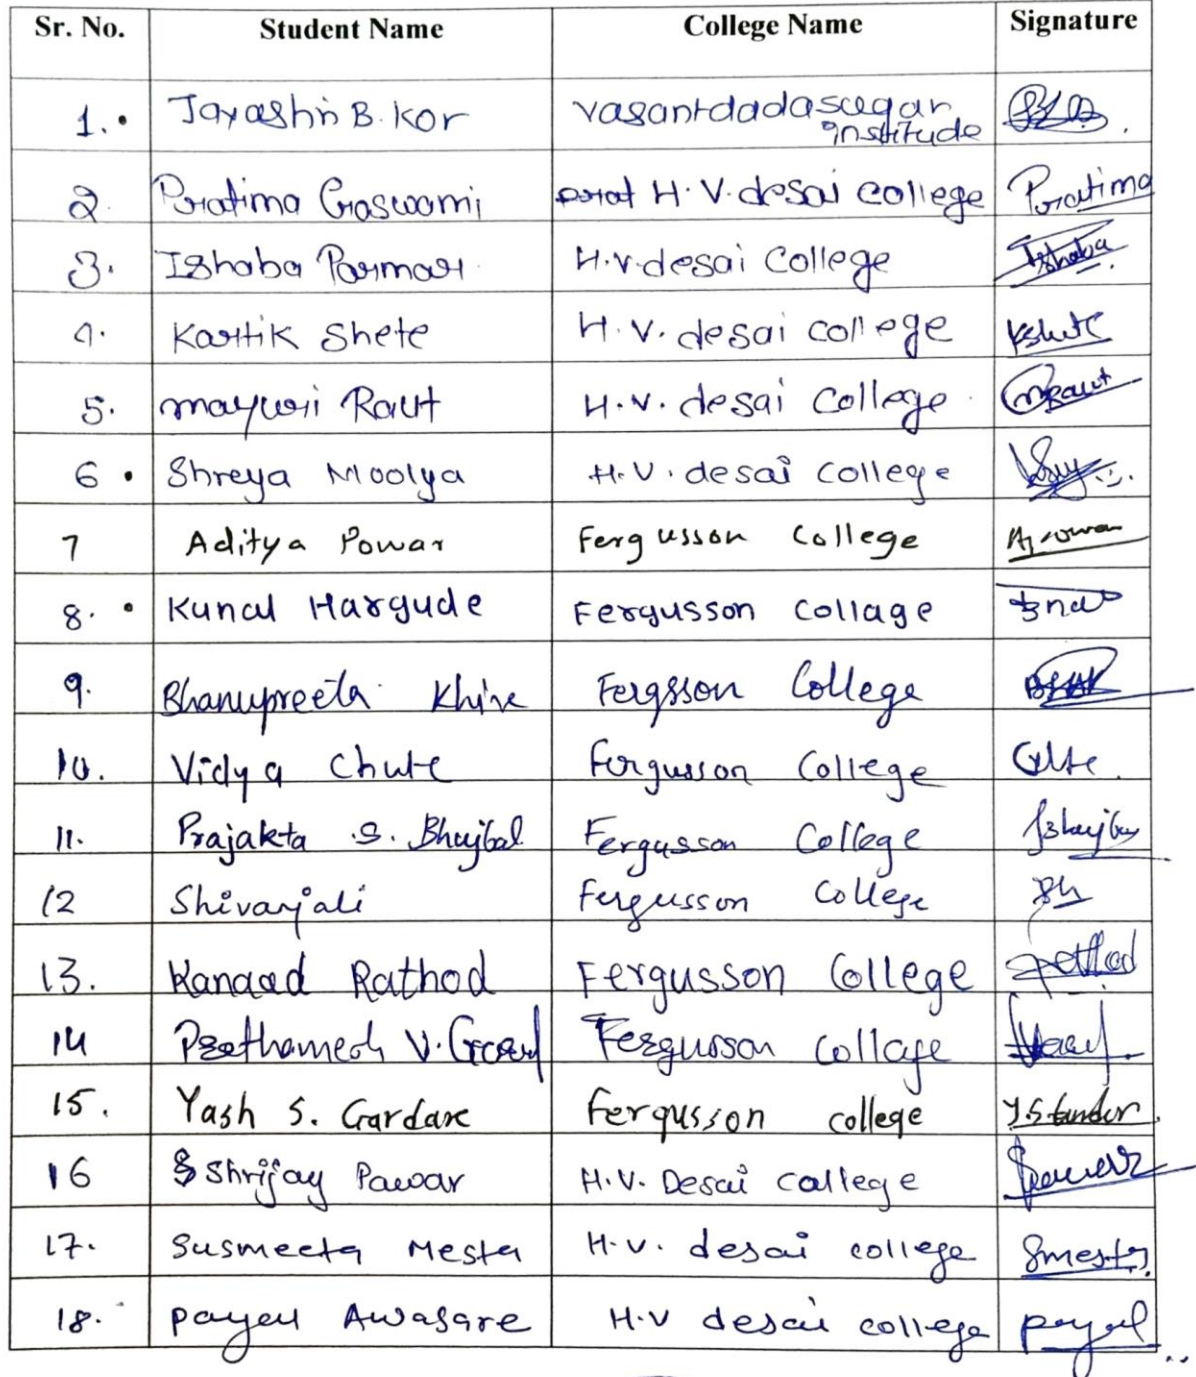 Sr. No. Student Name College Name Signature
1. Jayashri B. Kor vasantdadasugar
institude
2. Pratima Goswami H. V. desai college Pratima
3. Ishaba Parmar H.V. desai College Ishaba
4. Kartik Shete H. V. desai college
5. mayuri Raut H.V. desai College mRaut
6. Shreya Moolya H.V. desai college
7 Aditya Powar Fergusson College
8. Kunal Hargude Fergusson Collage
9. Bhanupreeta Khire Fergsson College
10. Vidya Chute Fergusson College
11. Prajakta .S. Bhujbal Fergusson College
12 Shivanjali Fergusson College Sh
13. Kanaad Rathod Fergusson College
14 V. Fergusson Collage
15. Yash S. Gardare Fergusson college
16 Shrijay Pawar H.V. Desai college
17. Susmeeta Mesta H.V. desai college Smesta
18. Payal Awasare H.V desai college payal